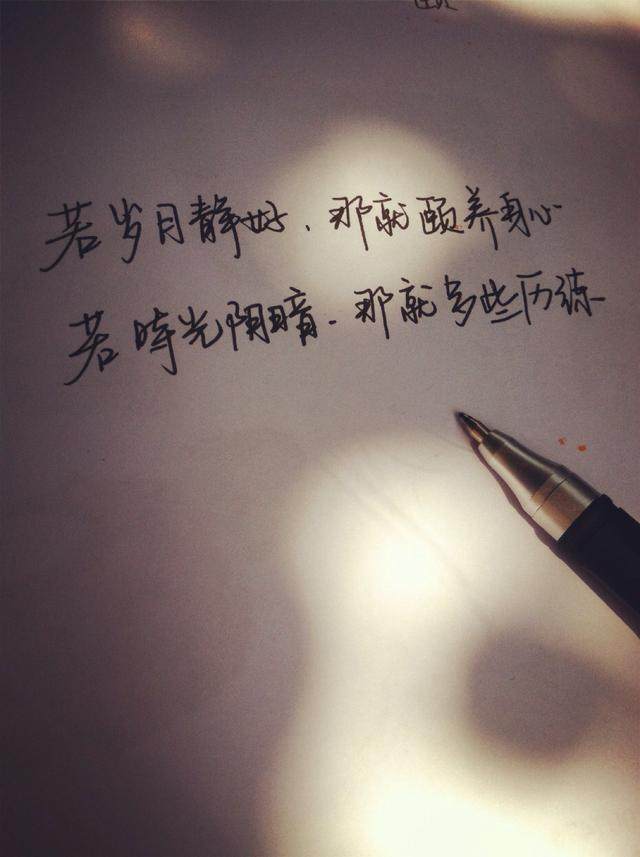 若岁月静好、那就颐养身心
若时光阴暗、那就多些历练